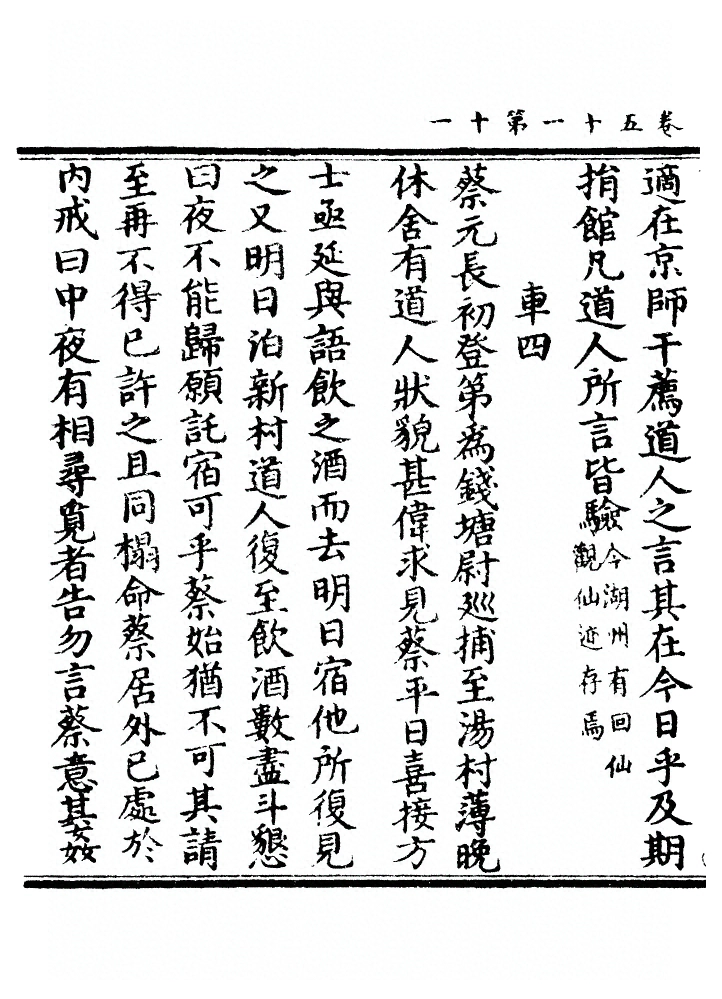 卷五十一第十一
適在京師干薦道人之言其在今日乎及期
捐館凡道人所言皆驗今湖州有回仙
觀仙迹存焉
車四
蔡元長初登第為錢塘尉巡捕至湯村薄晚
休舍有道人狀貌甚偉求見蔡平日喜接方
士亟延與語飲之酒而去明日宿他所復見
之又明日泊新村道人復至飲酒數盡斗懇
曰夜不能歸願託宿可乎蔡始猶不可其請
至再不得已許之且同榻命蔡居外已處於
內戒曰中夜有相尋覓者告勿言蔡意其姦